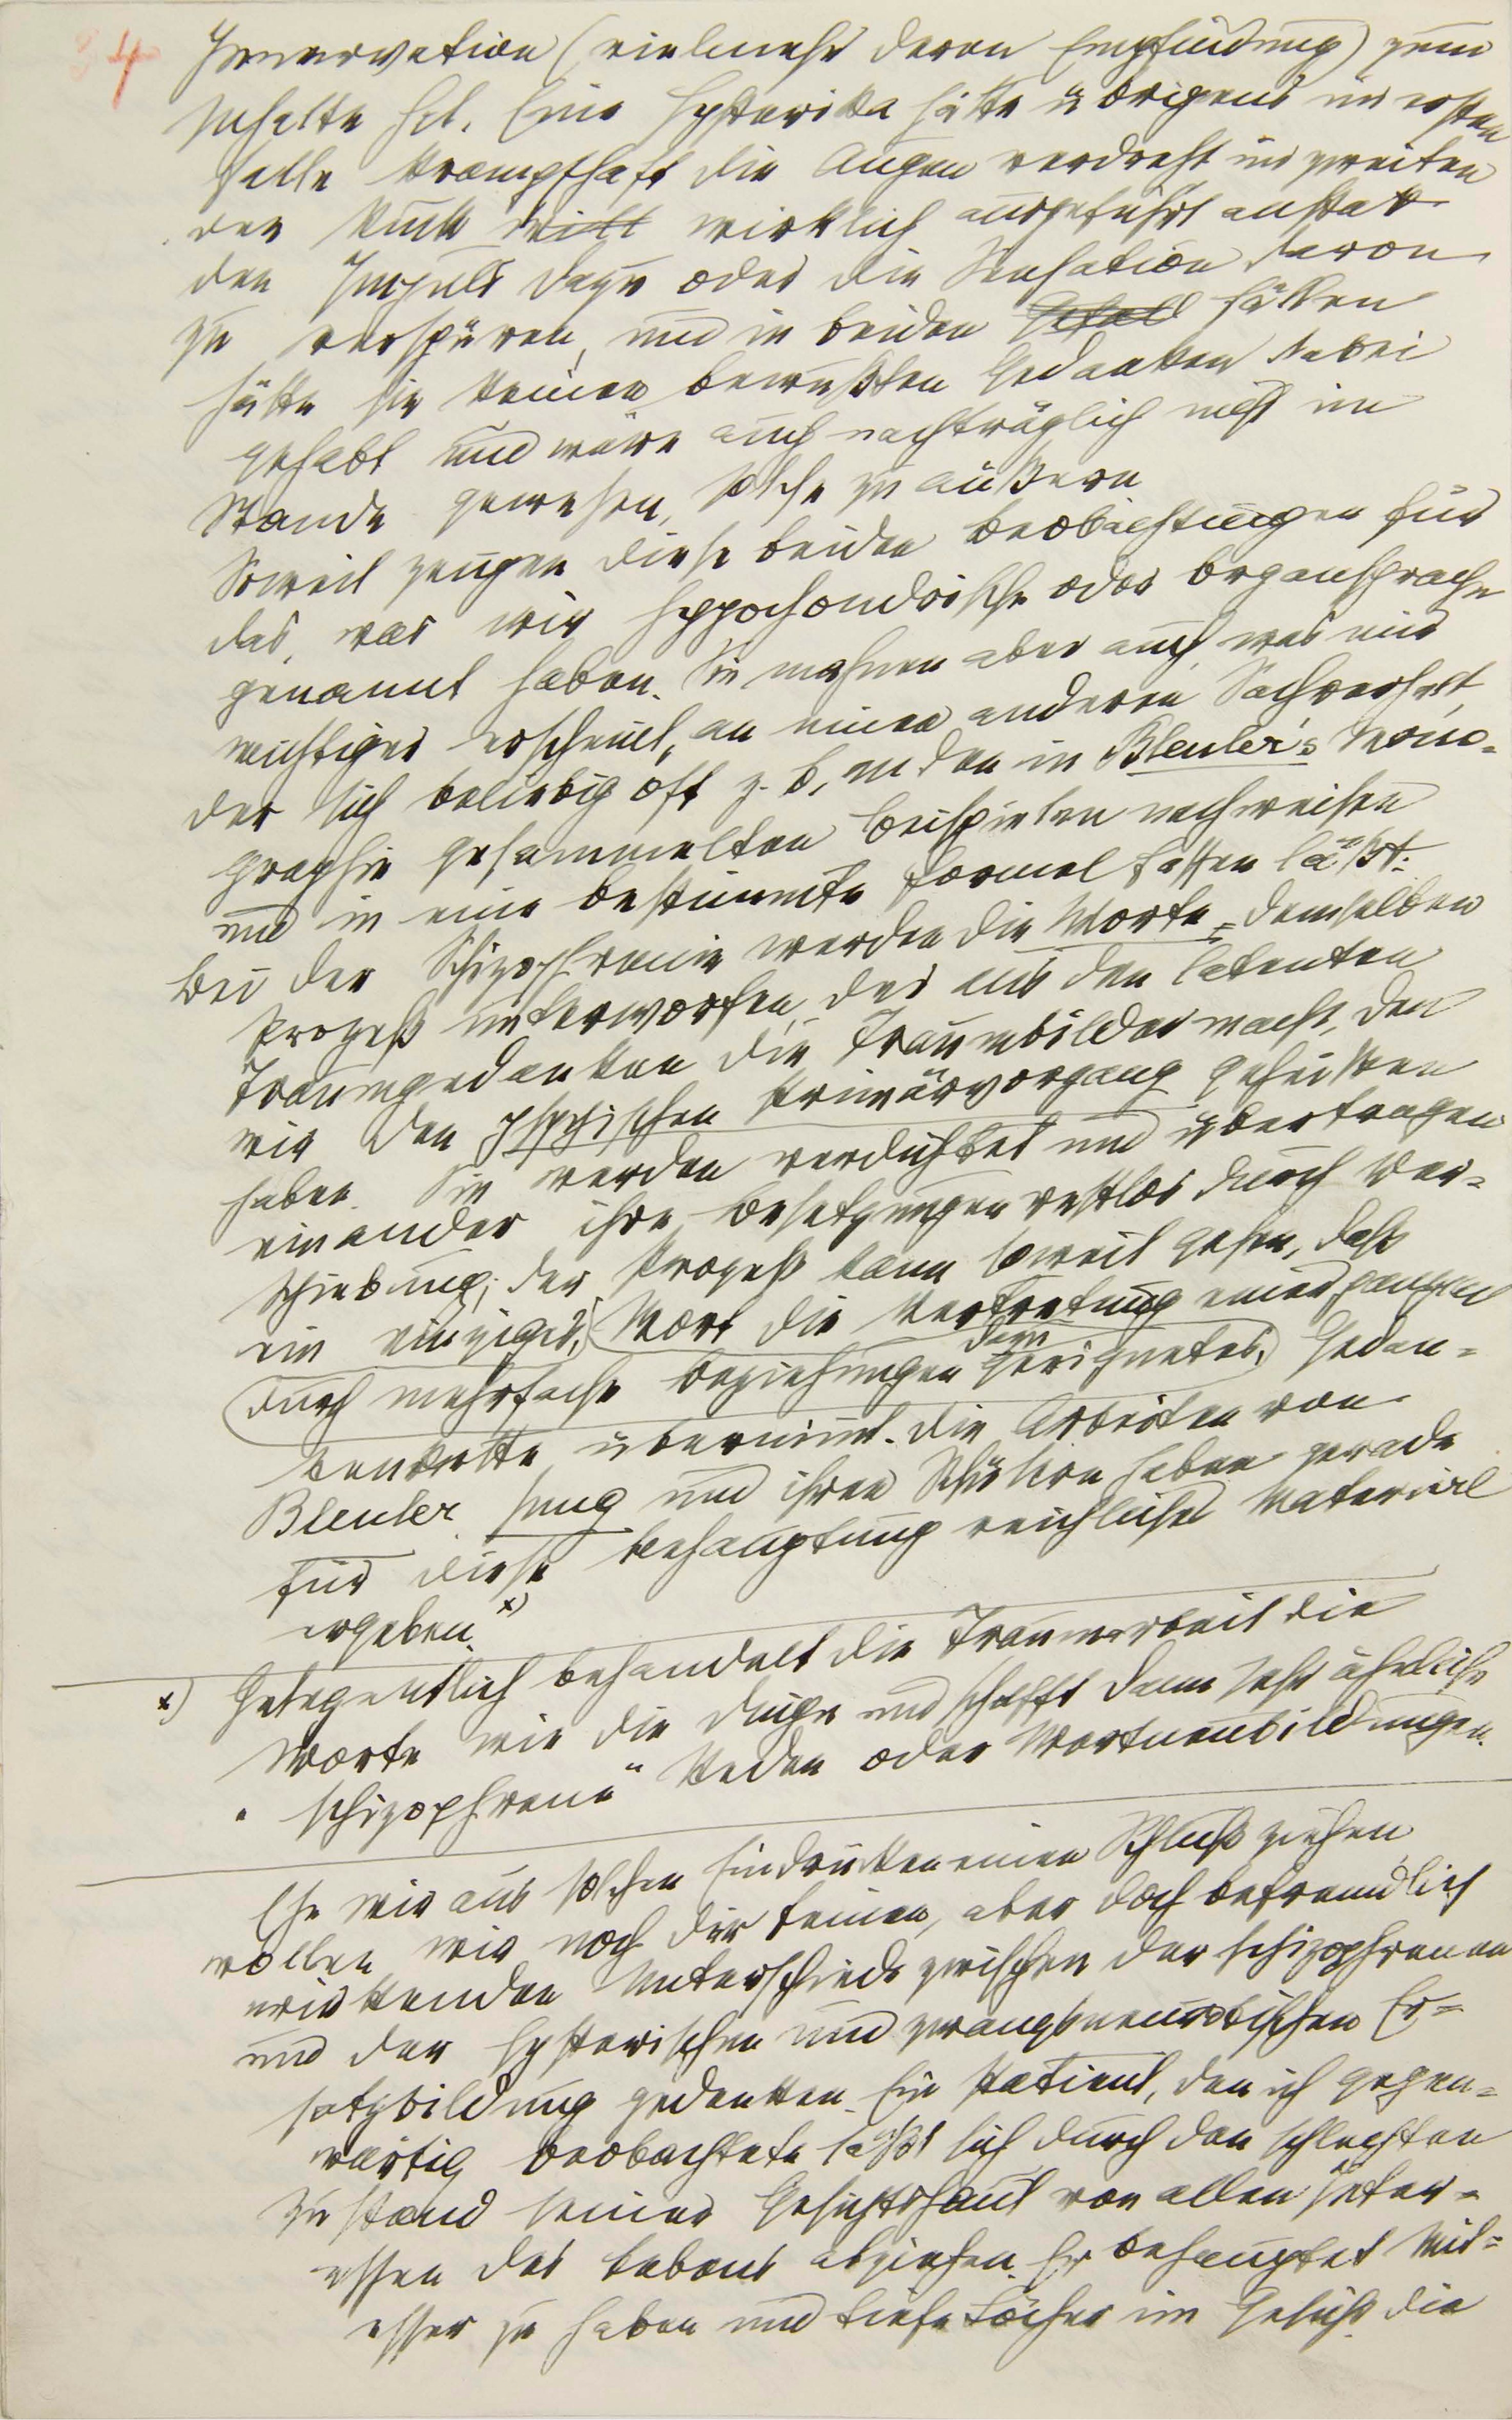 34
Innervation (vielmehr deren Empfindung) zum
Inhalte hat. Eine Hysterika hätte übrigens im ersten
Falle krampfhaft die Augen verdreht im zweiten
den Ruck wirklich ausgeführt anstatt
den Impuls dazu oder die Sensation davon
zu verspüren, und in beiden Fällen
hätte sie keinen bewußten Gedanken dabei
gehabt und wäre auch nachträglich nicht im
Stande gewesen, solche zu äußern
Soweit zeugen diese beiden Beobachtungen für
das, was wir hypochondrische oder Organsprache
genannt haben. Sie mahnen aber auch, was uns
wichtiger erscheint, an einen anderen Sachverhalt,
der sich beliebig oft z. B. an den in Bleuler's Mono-
graphie gesammelten Beispielen nachweisen
und in eine bestimmte Formel fassen läßt.
Bei der Schizophrenie werden die Worte demselben
Prozeß unterworfen, der aus den latenten
Traumgedanken die Traumbilder macht, den
wir den psychischen Primärvorgang geheißen
haben. Sie werden verdichtet und übertragen
einander ihre Besetzungen restlos durch Ver-
schiebung; der Prozeß kann soweit gehen, daß
ein einziges, Wort die Vertretung einer ganzen
durch mehrfache Beziehungen dazu geeignetes, Gedan-
kenkette übernimmt. Die Arbeiten von
Bleuler, Jung und ihren Schülern haben gerade
für diese Behauptung reichliches Material
ergeben. x)
x) Gelegentlich behandelt die Traumarbeit die
Worte wie die Dinge und schafft dann sehr ähnliche
„schizophrene" Reden oder Wortneubildungen.
Ehe wir aus solchen Eindrücken einen Schluß ziehen,
wollen wir noch der feinen, aber doch befremdlich
wirkenden Unterschiede zwischen der schizophrenen
und der hysterischen und zwangsneurotischen Er-
satzbildung gedenken. Ein Patient, den ich gegen-
wärtig beobachtete läßt sich durch den schlechten
Zustand seiner Gesichtshaut von allen Inter-
essen des Lebens abziehen. Er behauptet Mit-
esser zu haben und tiefe Löcher im Gesicht die